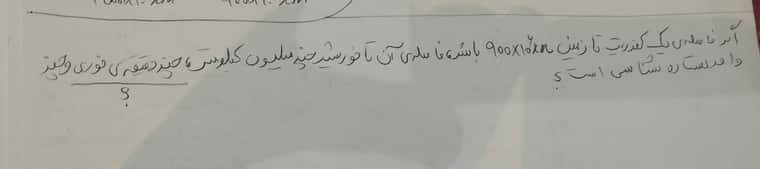 اگر فاصله‌ی یک کندریت تا زمین 900×10⁶km باشد، فاصله‌ی آن تا خورشید چند میلیون کیلومتر، چند دقیقه‌ی نوری و چند
واحد ستاره شناسی است؟
؟